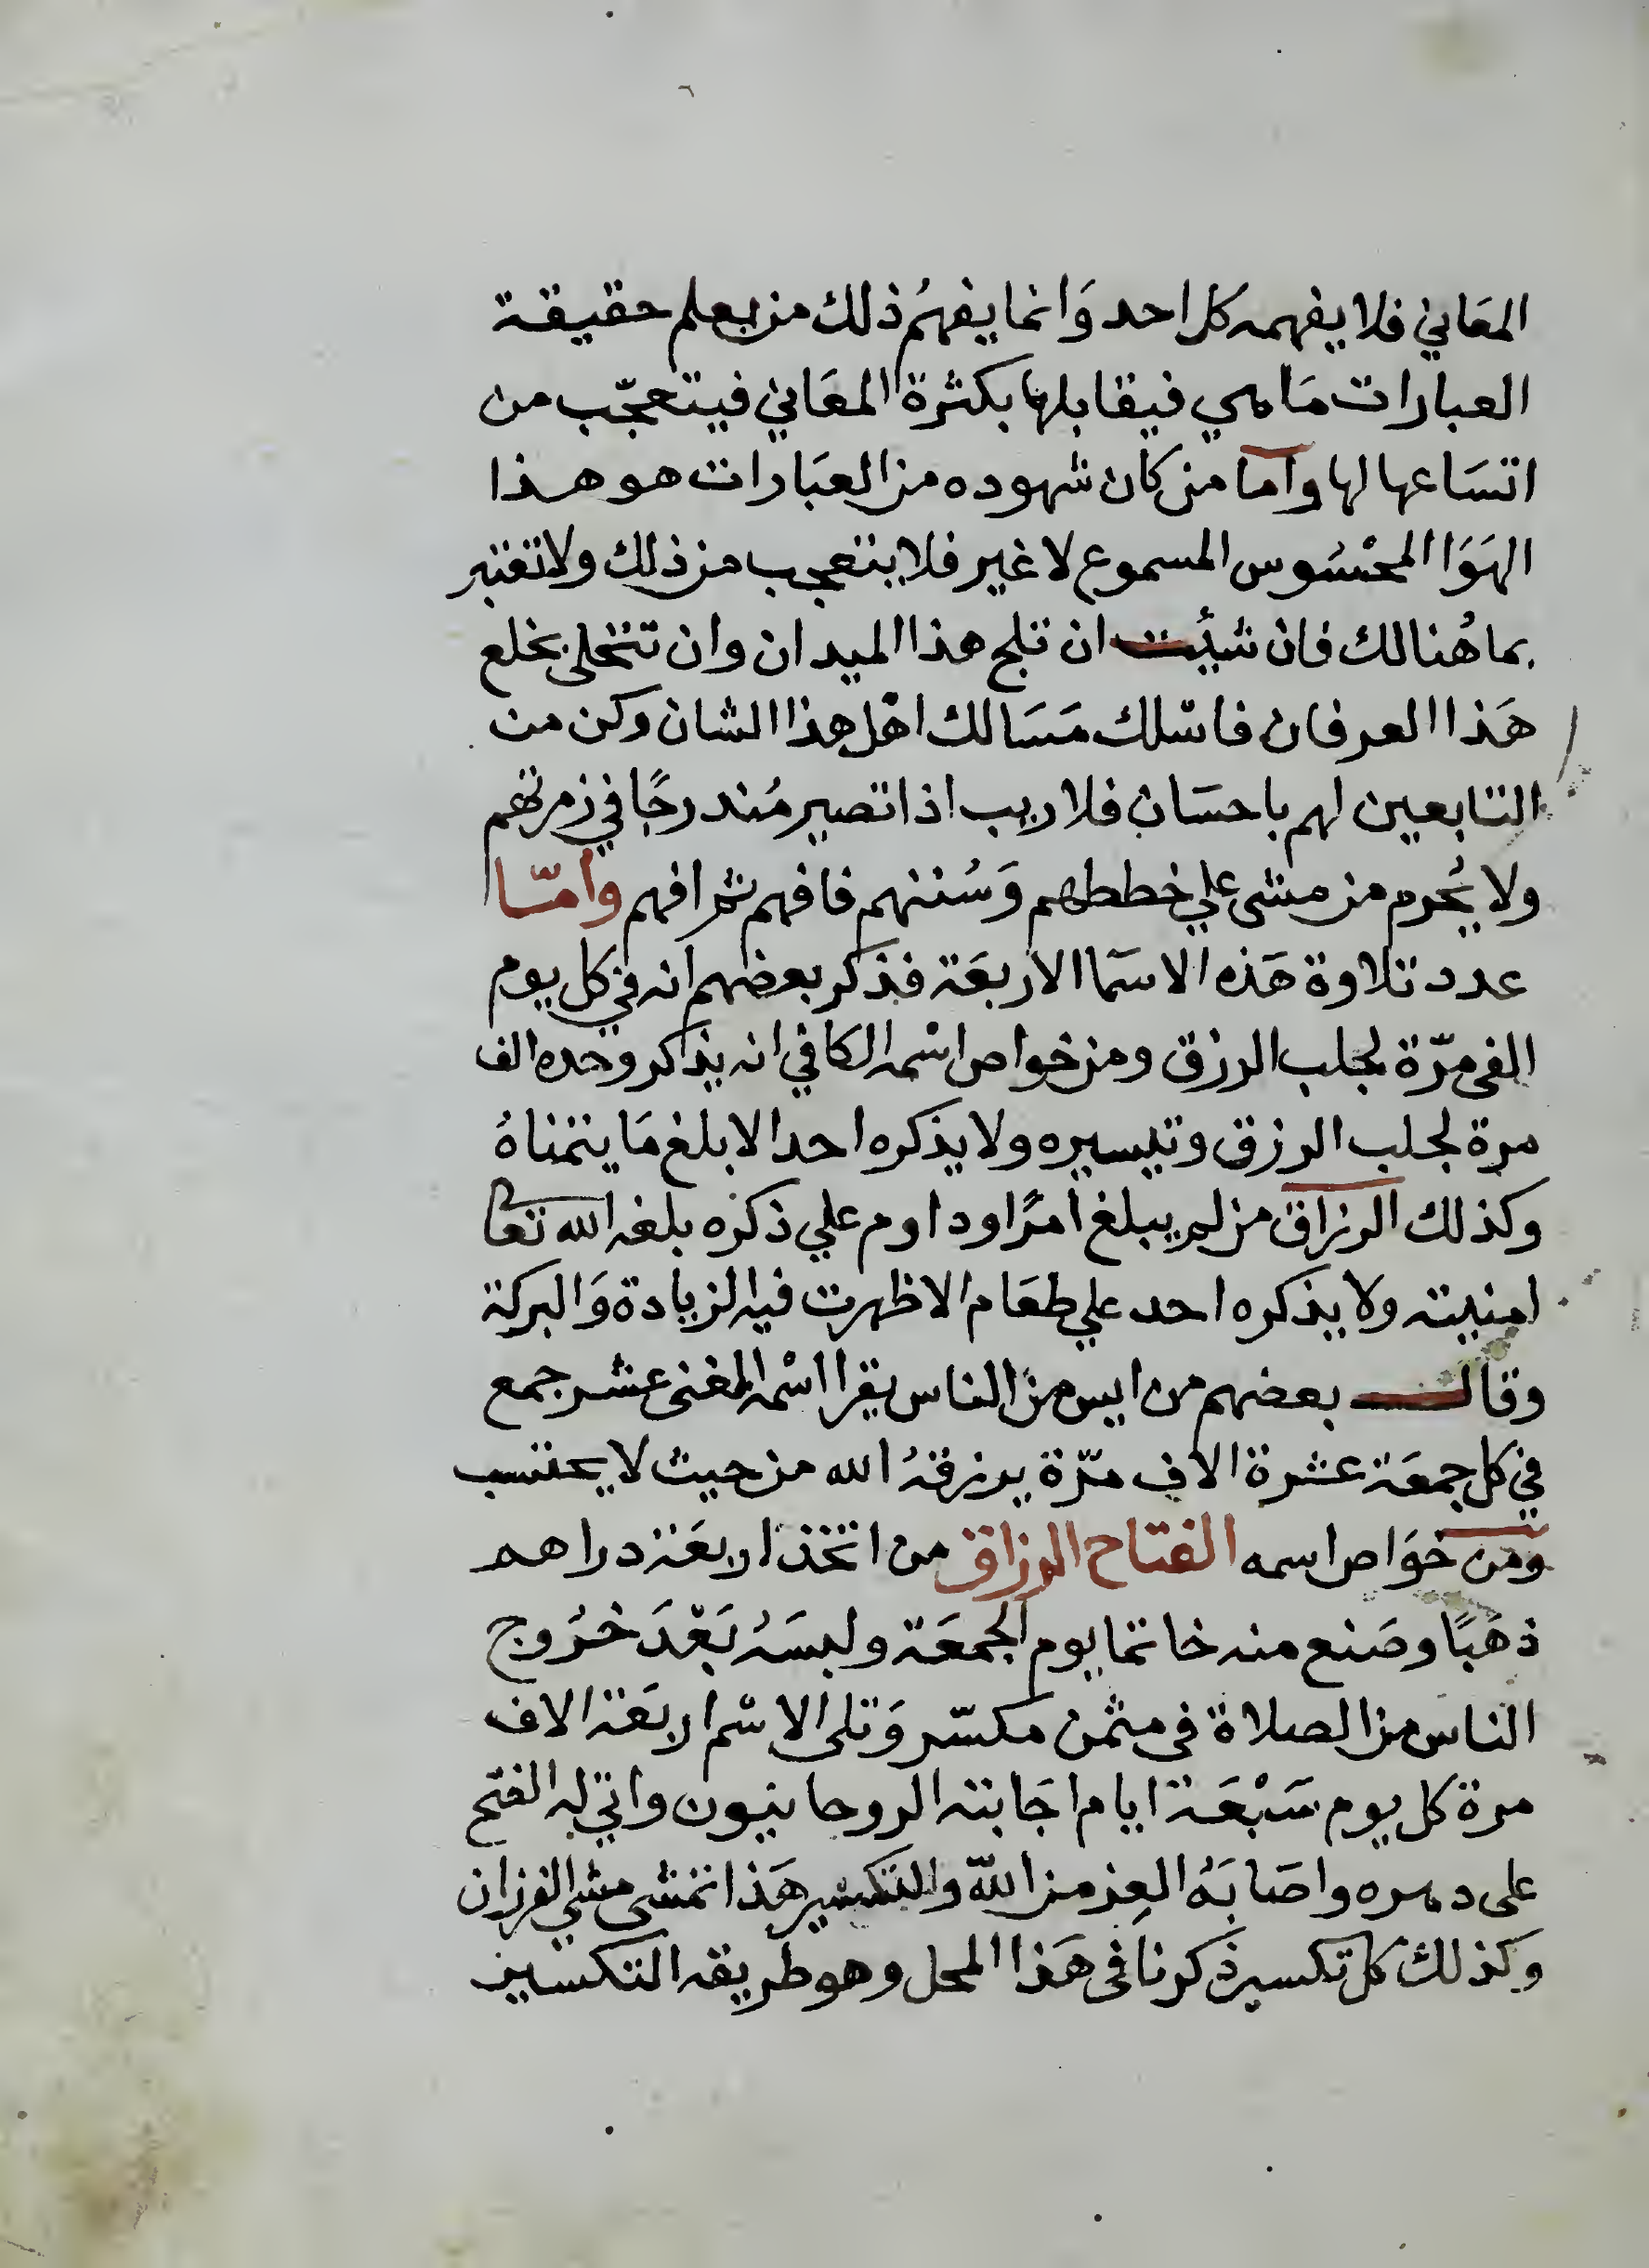 المعَاني فلا يفهمه كل احد وَانما يفهمُ ذلك من يعلم حقيقة
العبارات مَا هي فيقابلها بكثرة المعَاني فيتعجّب من
اتسَاعها لها واما من كان شهوده من العبَارات هو هذا
الهَوَا المحْسُوس المسموع لا غير فلا يتعجب من ذلك ولا تغتبر
بما هُنالك فان شيئت ان تلج هذا الميدان وان تتحلى بخلع
هَذا العرفان فاسْلك مَسَالك اهْل هذا الشان وكن من
التابعين لهم باحسَان فلا ريب اذا تصير مُندرجًا في زمرتهم
ولا يُحرم من مشى علي خططهم وَسُننهم فافهم ثم افهم وامّا
عدد تلاوة هَذه الاسمَا الاربعَة فذكر بعضهم انه في كل يوم
الفي مرّة لجلب الرزق ومن خواص اسْمه الكافي انه يذاكر وحده الف
مرة لجلب الرزق وتيسيره ولا يذكره احدا الا بلغ مَا يتمناهُ
وكذلك الرزاق من لم يبلغ امرًا وداوم علي ذكره بلغه الله تعا
امنيته ولا يذكره احد علي طعَام الا ظهرت فيه الزيادة وَالبركة
وقال بعضهم من ايس من الناس يقرا اسْمه المغنى عشر جمع
في كل جمعَة عشرة الاف مرّة يرزقهُ الله من حيث لا يحتسب
ومن خوَاص اسمه الفتاح الرزاق من اتخذ اربعَة دراهم
ذهبًا وصَنع منه خاتما يوم الجمعَة ولبسَهُ بَعْدَ خرُوج
الناس من الصلاة في مثمن مكسّر وَتلى الاسْم اربعَة الاف
مرة كل يوم سَبْعَة ايام اجَابته الروحانيون واتي له الفتح
على دهره واصَابَهُ العِز من اللّه والتكسير هَذا تمشى مشي الفرزان
وكذلك كل تكسير ذكرنا في هَذا المحل وهو طريقه التكسير